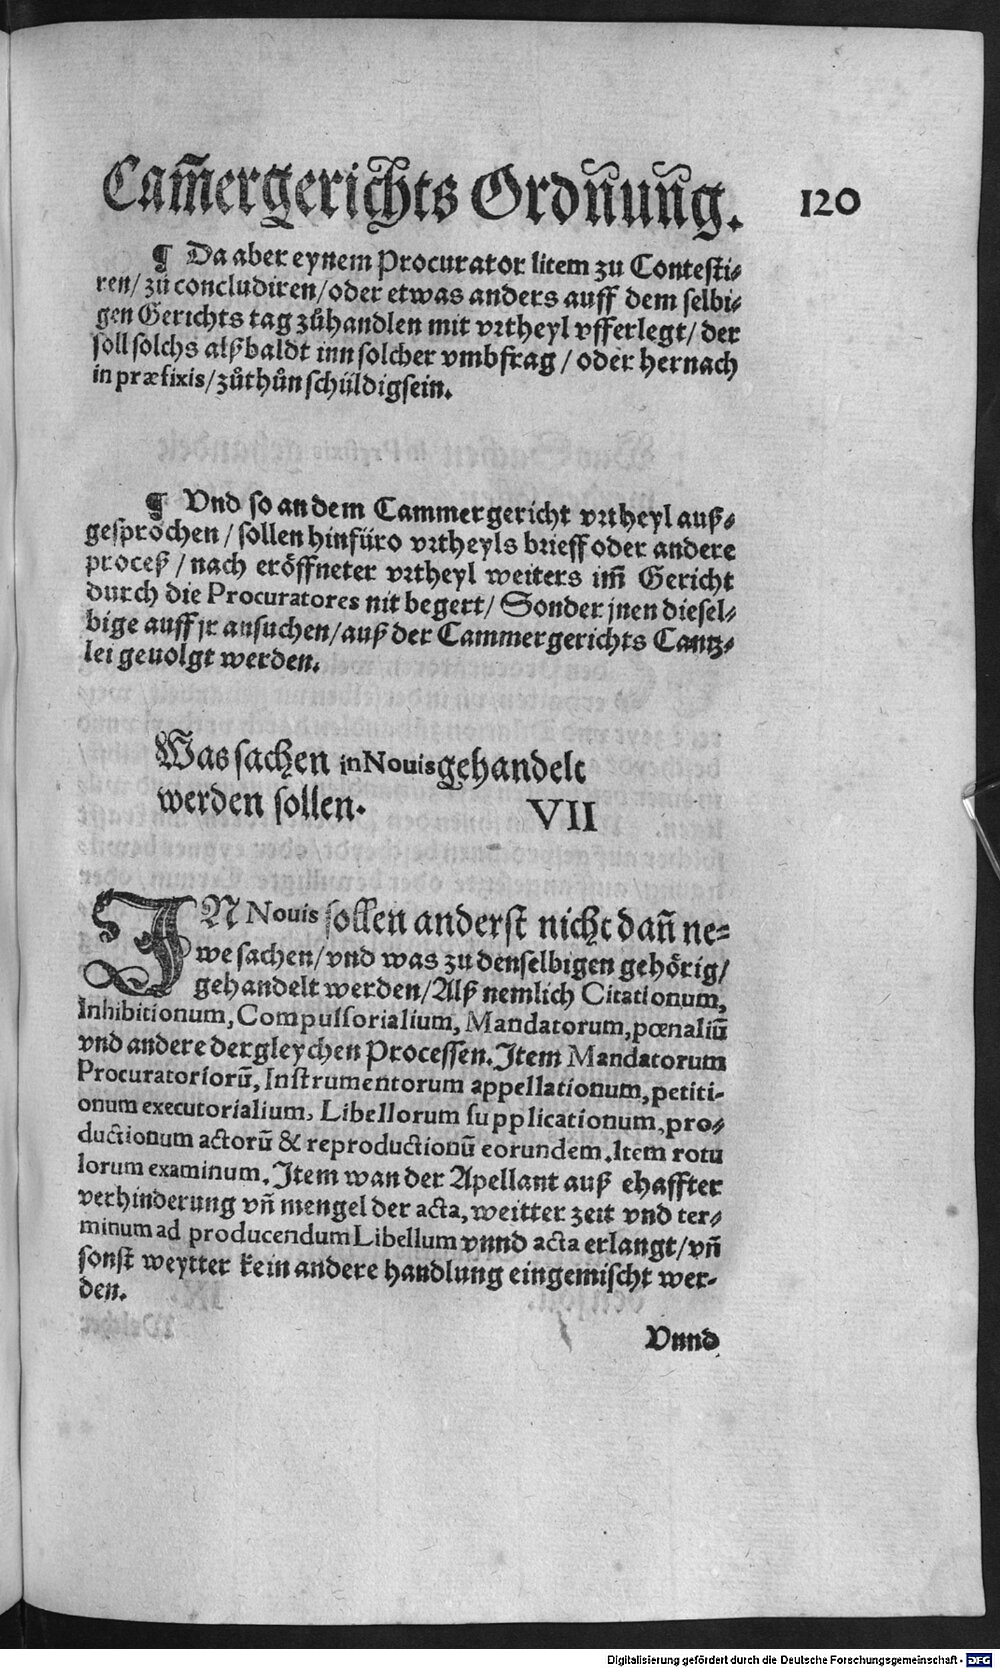 Cam̃ergerichts Ordñuñg. 120
¶ Da aber eynem Procurator litem zu Contesti-
ren/ zů concludiren/ oder etwas anders auff dem selbi-
gen Gerichts tag zůhandlen mit vrtheyl vfferlegt/ der
soll solchs alßbaldt inn solcher vmbfrag / oder hernach
in præfixis/ zůthůn schüldig sein.
¶ Vnd so an dem Cammergericht vrtheyl auß-
gesprochen / sollen hinfüro vrtheyls brieff oder andere
proceß / nach eröffneter vrtheyl weiters im̃ Gericht
durch die Procuratores nit begert/ Sonder jnen diesel-
bige auff jr ansuchen/ auß der Cammergerichts Cantz-
lei geuolgt werden.
Was sachen in Nouis gehandelt
werden sollen. VII
IN Nouis sollen anderst nicht dañ ne-
we sachen/ vnd was zu denselbigen gehörig/
gehandelt werden/ Alß nemlich Citationum,
Inhibitionum, Compulsorialium, Mandatorum, pœnaliũ
vnd andere dergleychen Processen. Item Mandatorum
Procuratoriorũ, Instrumentorum appellationum, petiti-
onum executorialium, Libellorum supplicationum, pro-
ductionum actorũ & reproductionũ eorundem. Item rotu
lorum examinum. Item wan der Apellant auß ehaffter
verhinderung vñ mengel der acta, weitter zeit vnd ter-
minum ad producendum Libellum vnnd acta erlangt/ vñ
sonst weytter kein andere handlung eingemischt wer-
den.
Vnnd
Digitalisierung gefördert durch die Deutsche Forschungsgemeinschaft - DFG